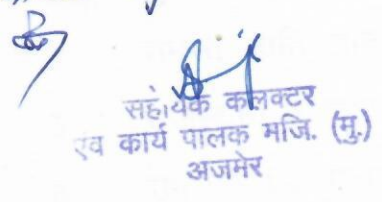 सहायक कलक्टर
एव कार्य पालक मजि. (मु.)
अजमेर